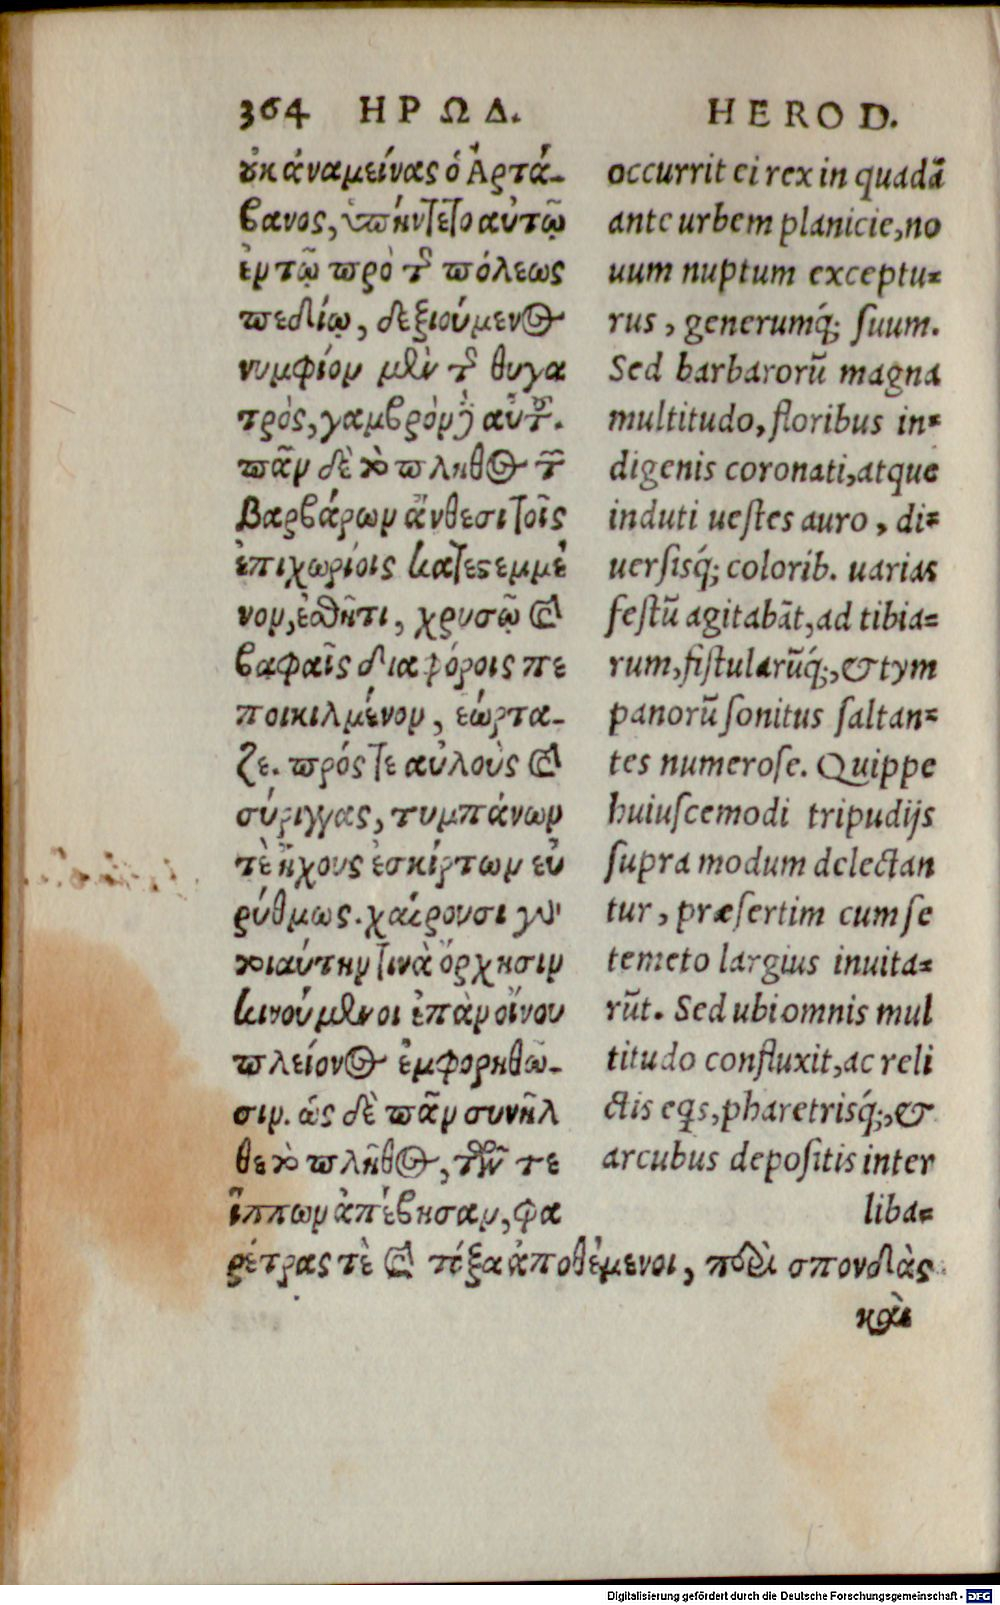 364 ΗΡΩΔ.
οὐκ ἀναμείνας ὁ Ἀρτά-
βανος, ὑπήντετο αὐτῷ
ἐν τῷ πρὸ τῆς πόλεως
πεδίῳ, δεξιούμενος
νυμφίον μὲν τῆς θυγα
τρὸς, γαμβρὸν δὲ αὑτοῦ.
πᾶν δὲ τὸ πλῆθος τῶν
βαρβάρων ἄνθεσι τοῖς
ἐπιχωρίοις κατεστεμμέ
νον, ἐσθῆτι, χρυσῷ καὶ
βαφαῖς διαφόροις πε
ποικιλμένον, ἑώρτα-
ζε. πρός τε αὐλοὺς καὶ
σύριγγας, τυμπάνων
τὲ ἤχους ἐσκίρτων εὐ
ρύθμως. χαίρουσι γὰρ
τοιαύτην τινὰ ὄρχησιν
κινούμενοι ἐπὰν οἴνου
πλείονος ἐμφορηθῶ-
σιν. ὡς δὲ πᾶν συνῆλ
θε τὸ πλῆθος, τῶν τε
ἵππων ἀπέβησαν, φα
ρέτρας τὲ καὶ τόξα ἀποθέμενοι, περὶ σπονδὰς
καὶ
HEROD.
occurrit ei rex in quadā
ante urbem planicie, no
uum nuptum exceptu=
rus, generumq́; suum.
Sed barbarorū magna
multitudo, floribus in=
digenis coronati, atque
induti uestes auro, di=
uersisq́; colorib. uarias
festū agitabāt, ad tibia=
rum, fistularūq́;, & tym
panorū sonitus saltan=
tes numerose. Quippe
huiuscemodi tripudijs
supra modum delectan
tur, præsertim cum se
temeto largius inuita=
rūt. Sed ubi omnis mul
titudo confluxit, ac reli
ctis eqs, pharetrisq́;, &
arcubus depositis inter
liba=
Digitalisierung gefördert durch die Deutsche Forschungsgemeinschaft - DFG